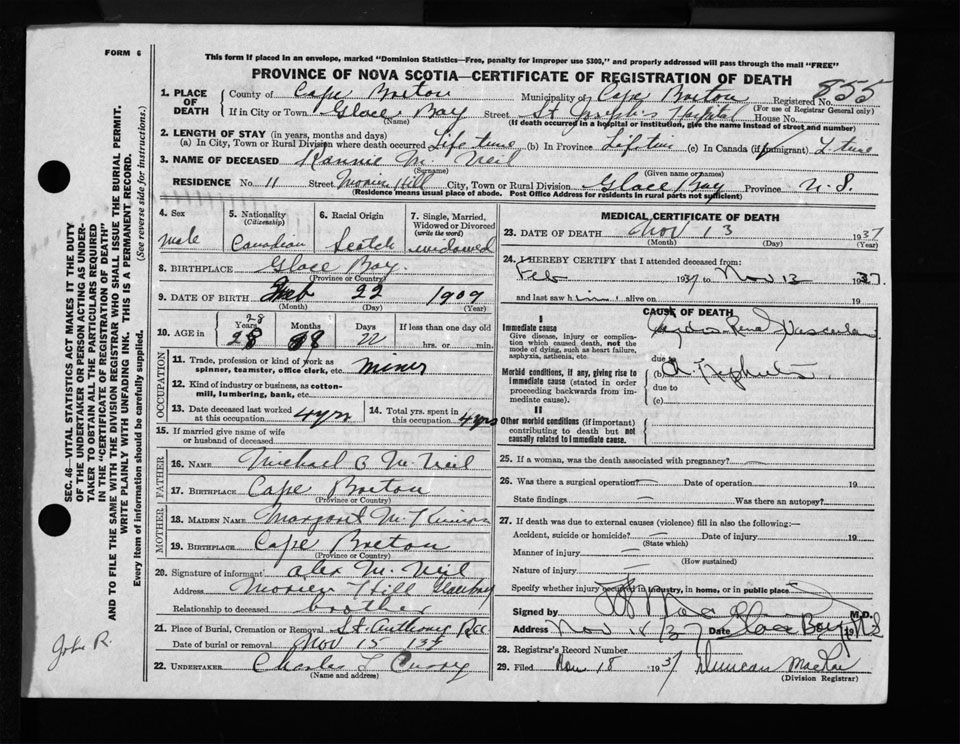 FORM 6
This form if placed in an envelope, marked "Dominion Statistics—Free, penalty for improper use $300," and properly addressed will pass through the mail "FREE"
PROVINCE OF NOVA SCOTIA—CERTIFICATE OF REGISTRATION OF DEATH
855
1. PLACE OF DEATH County of Cape Breton Municipality of Cape Breton Registered No.
(For use of Registrar General only)
If in City or Town Glace Bay Street St Joseph's Hospital House No.
(Name) (If death occurred in a hospital or institution, give the name instead of street and number)
2. LENGTH OF STAY (in years, months and days)
(a) In City, Town or Rural Division where death occurred Life time (b) In Province Lifetime (c) In Canada (if immigrant) L time
3. NAME OF DECEASED Rannie Mc Neil
(Surname) (Given name or names)
RESIDENCE No. 11 Street Morien Hill City, Town or Rural Division Glace Bay Province N.S.
(Residence means usual place of abode. Post Office Address for residents in rural parts not sufficient)
4. Sex Male
5. Nationality (Citizenship) Canadian
6. Racial Origin Scotch
7. Single, Married, Widowed or Divorced (write the word) widowed
8. BIRTHPLACE Glace Bay.
(Province or Country)
9. DATE OF BIRTH Feb 22 1909
(Month) (Day) (Year)
10. AGE in Years 28 28 Months 8 Days 22 If less than one day old
hrs. or min.
OCCUPATION
11. Trade, profession or kind of work as spinner, teamster, office clerk, etc. miner
12. Kind of industry or business, as cotton-mill, lumbering, bank, etc.
13. Date deceased last worked at this occupation 4 yrs
14. Total yrs. spent in this occupation 4 yrs
15. If married give name of wife or husband of deceased
FATHER
16. NAME Michael B Mc Neil
17. BIRTHPLACE Cape Breton
(Province or Country)
MOTHER
18. MAIDEN NAME Margaret McKinnon
19. BIRTHPLACE Cape Breton
(Province or Country)
20. Signature of informant Alex Mc Neil
Address Morien Hill Glace Bay
Relationship to deceased brother
21. Place of Burial, Cremation or Removal St. Anthony
Date of burial or removal Nov 15 1937
22. UNDERTAKER Charles L Curry
(Name and address)
MEDICAL CERTIFICATE OF DEATH
23. DATE OF DEATH Nov 13 1937
(Month) (Day) (Year)
24. I HEREBY CERTIFY that I attended deceased from:
Feb 1937 to Nov 13 1937
and last saw him alive on 19
CAUSE OF DEATH
I
Immediate cause
Give disease, injury or complication which caused death, not the mode of dying, such as heart failure, asphyxia, asthenia, etc.
Cardio-Renal Vascular
due to
Morbid conditions, if any, giving rise to immediate cause (stated in order proceeding backwards from immediate cause).
(b) Ch Nephritis
due to
(c)
II
Other morbid conditions (if important) contributing to death but not causally related to immediate cause.
25. If a woman, was the death associated with pregnancy? —
26. Was there a surgical operation? — Date of operation 19
State findings — Was there an autopsy?
27. If death was due to external causes (violence) fill in also the following:—
Accident, suicide or homicide? — Date of injury 19
(State which)
Manner of injury —
(How sustained)
Nature of injury —
Specify whether injury occurred in industry, in home, or in public place
Signed by M.D.
Address Nov 18/37 Date Glace Bay 19 NS
28. Registrar's Record Number
29. Filed Nov 18 1937 Duncan MacRae
(Division Registrar)
SEC. 46—VITAL STATISTICS ACT MAKES IT THE DUTY
OF THE UNDERTAKER OR PERSON ACTING AS UNDER-
TAKER TO OBTAIN ALL THE PARTICULARS REQUIRED
IN THE "CERTIFICATE OF REGISTRATION OF DEATH"
AND TO FILE THE SAME WITH THE DIVISION REGISTRAR WHO SHALL ISSUE THE BURIAL PERMIT.
WRITE PLAINLY WITH UNFADING INK. THIS IS A PERMANENT RECORD.
Every item of information should be carefully supplied. (See reverse side for instructions.)
John R.